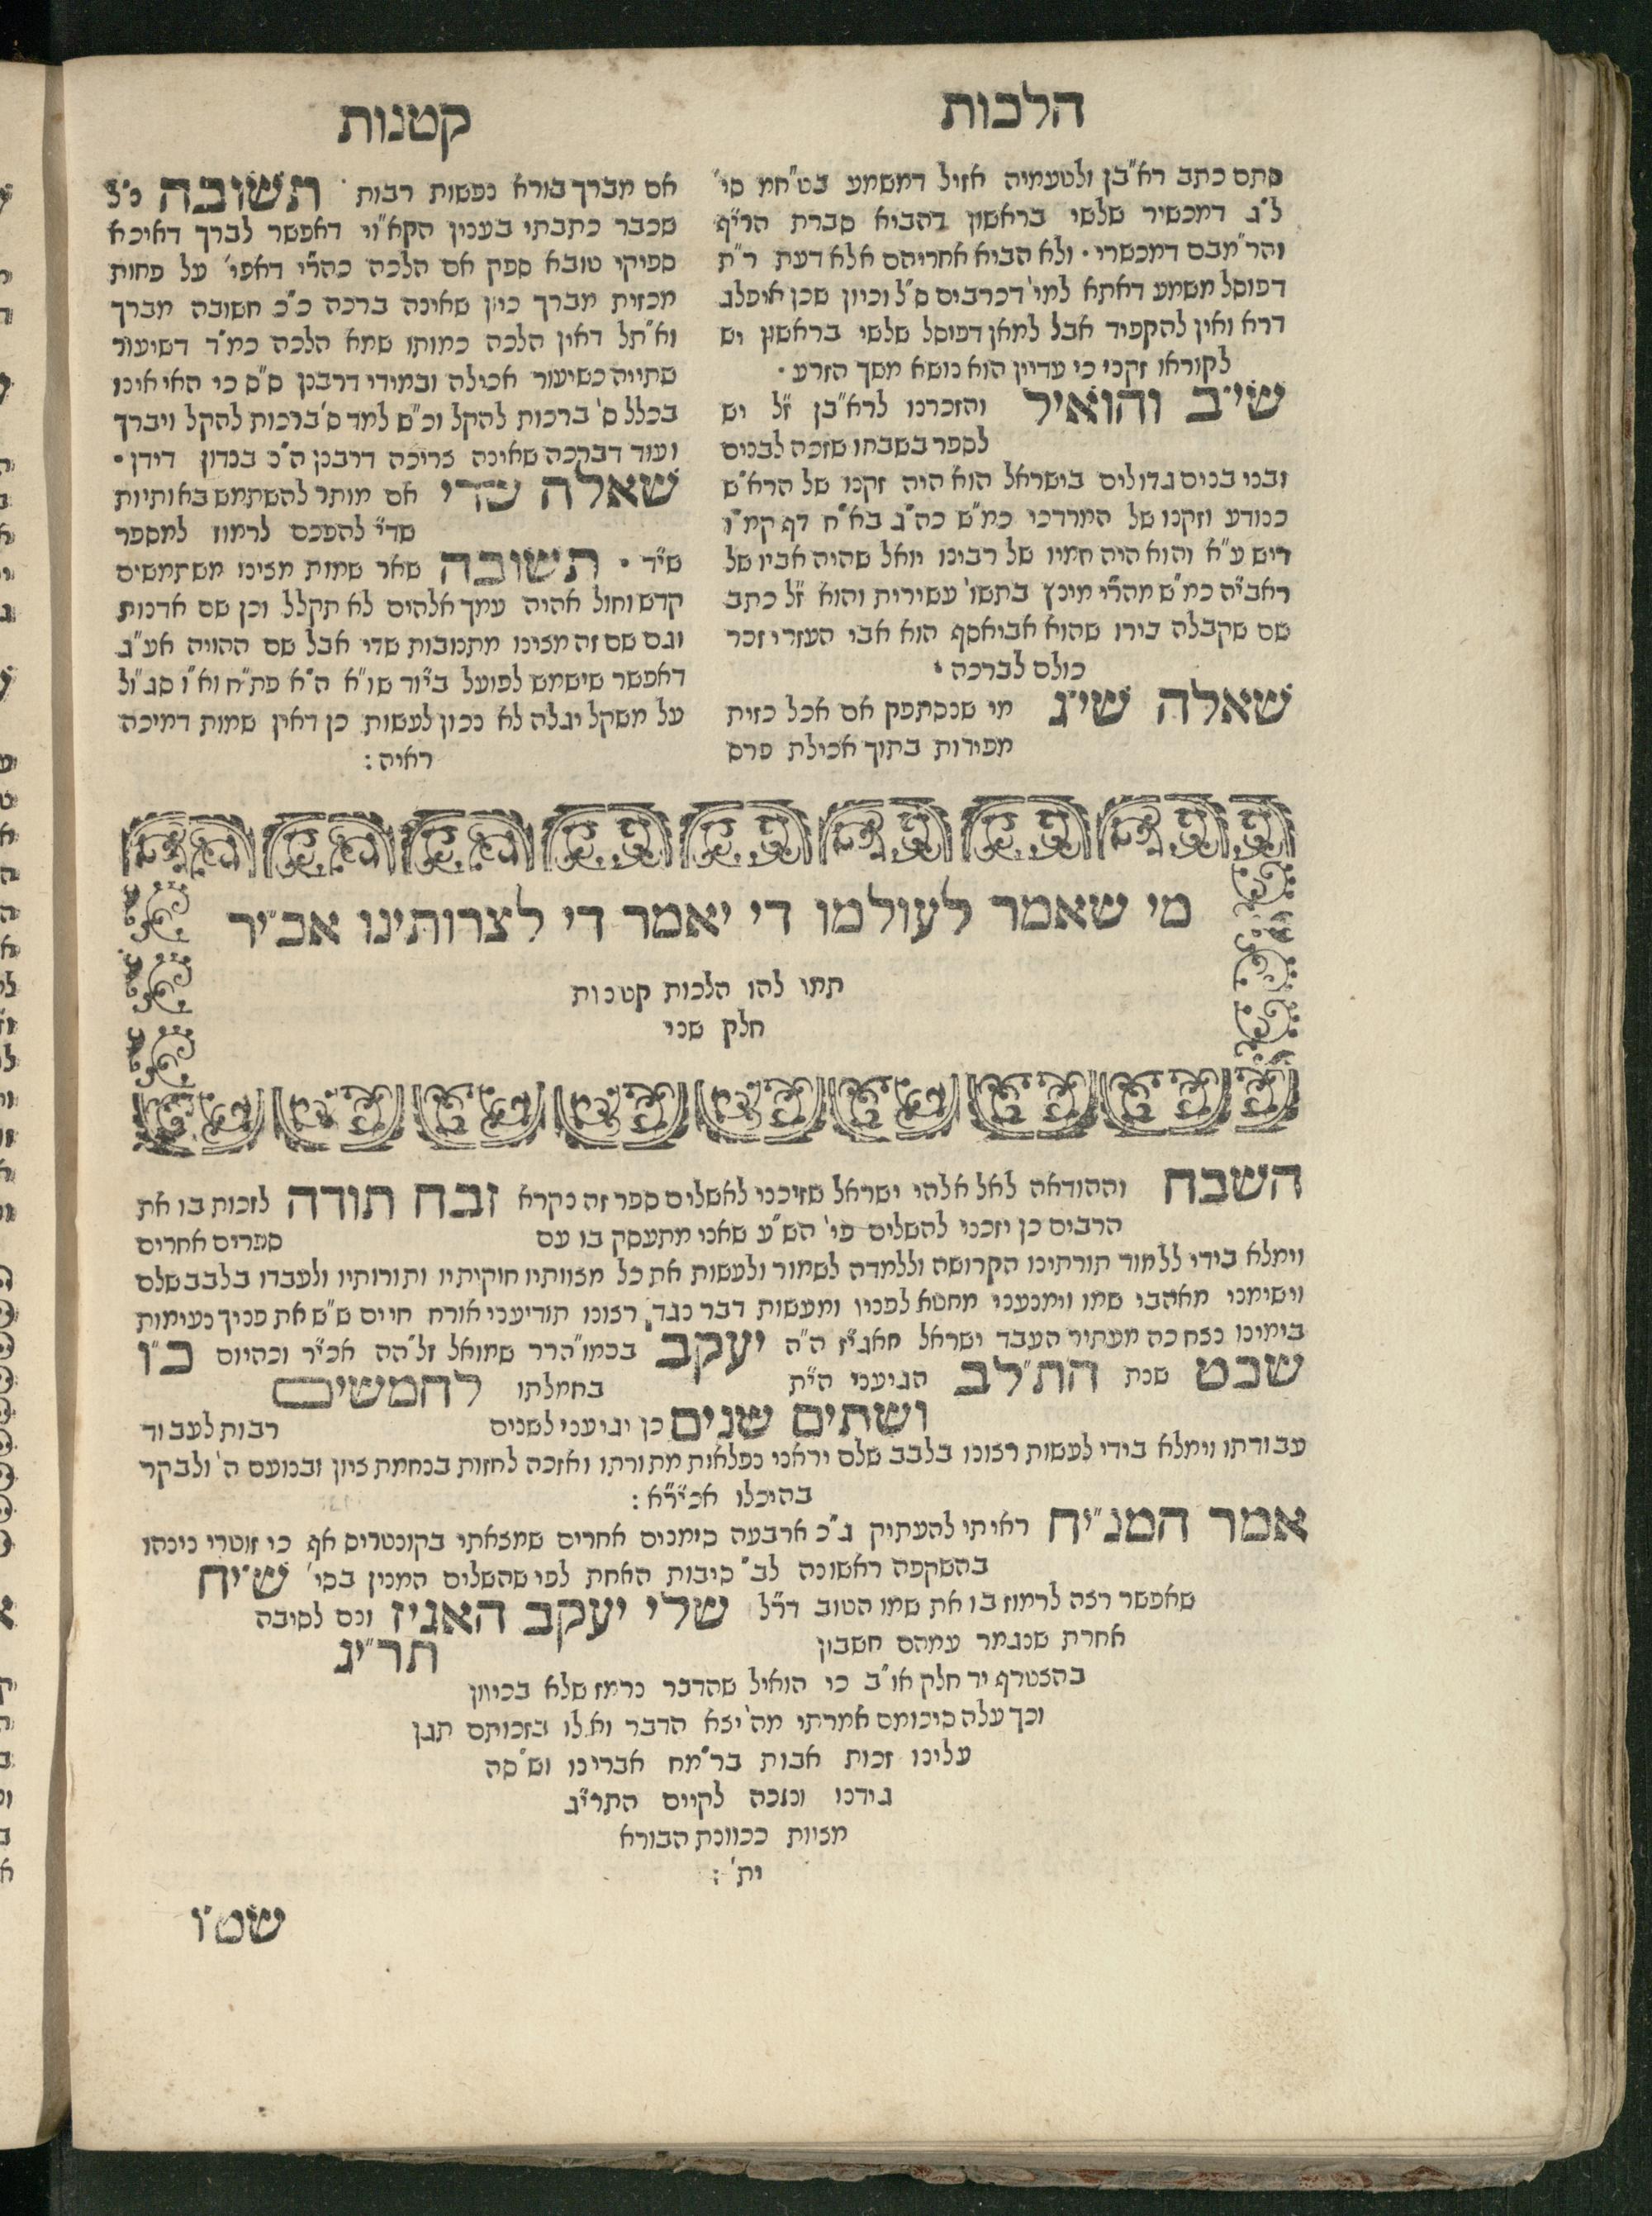 הלכות
קטנות
סתם כתב רא"בן ולטעמיה אזיל דמשמע בט"חמ סי'
ל"ג דמכשיר שלשי בראשון בהביא סברת הרי"ף
והר"מבם דמכשרי • ולא הביא אחריהם אלא דעת ר"ת
דפוסל משמע דאתא למי' דכרבים ס"ל וכיון שכן איפלג
דרא ואין להקפיד אבל למאן דפוסל שלשי בראשון יש
לקוראו זקני כי עדיין הוא נושא משך הזרע •
שי"ב והואיל והזכרנו לרא"בן ז"ל יש
לספר בשבחו שזכה לבנים
ובני בנים גדולים בישראל הוא היה זקנו של הרא"ש
כנודע וזקנו של המרדכי כמ"ש כה"ג בא"ח דף קמ"ו
ריש ע"א והוא היה חמיו של רבינו יואל שהיה אביו של
ראבי"ה כמ"ש מהר"י מינץ בתשו' עשירית והוא ז"ל כתב
שם שקבלה בידו שהוא אביאסף הוא אבי העזרי זכר
כולם לברכה •
שאלה שי"ג מי שנסתפק אם אכל כזית
מפירות בתוך אכילת פרס
אם מברך בורא נפשות רבות • תשובה כ"ל
שכבר כתבתי בענין הקא"וי דאפשר לברך דאיכא
ספיקי טובא ספק אם הלכה כהר"י דאפי' על פחות
מכזית מברך כיון שאינה ברכה כ"כ חשובה מברך
וא"תל דאין הלכה כמותו שמא הלכה כמ"ד דשיעור
שתייה כשיעור אכילה ובמידי דרבנן ס"ס כי האי אינו
בכלל ס' ברכות להקל וכ"ש למד ס' ברכות להקל ויברך
ועוד דברכה שאינה צריכה דרבנן ה"נ בנדון דידן •
שאלה שדי אם מותר להשתמש באותיות
שדי" להפכם לרמוז למספר
שי"ד • תשובה שאר שמות מצינו משתמשים
קדש וחול אהיה עמך אלהים לא תקלל וכן שם אדנות
וגם שם זה מצינו מתנובות שדי אבל שם ההויה אע"ג
דאפשר שישמש לפועל בי"וד שו"א ה"א פת"ח וא"ו סג"ול
על משקל יגלה לא נכון לעשות כן דאין שמות דמיכה
ראיה :
מי שאמר לעולמו די יאמר די לצרותינו אכ"יר
תמו להו הלכות קטנות
חלק שני
השבח וההודאה לאל אלהי ישראל שזיכני לאשלים ספר זה נקרא זבח תודה לזכות בו את
הרבים כן יזכני להשלים פי' הש"ע שאני מתעסק בו עם ספרים אחרים
וימלא בידי ללמוד תורתינו הקדושה וללמדה לשמור ולעשות את כל מצוותיו חוקיתיו ותורותיו ולעבדו בלבב שלם
וישימני מאהבי שמו וימנעני מחטא לפניו ומעשות דבר נגד רצונו תודיעני אורח חיים ש"ש את פניך נעימות
בימינו נצח כה מעתיר העבד ישראל חאגי"ז ה"ה יעקב בכמו"הרר שמואל זל"הה אכי"ר וכהיום כ"ו
שבט שנת הת"לב הגיעני הי"ת בחמלתו לחמשים
ושתים שנים כן יגיעני לשנים רבות לעבוד
עבודתו וימלא בידי לעשות רצונו בלבב שלם יראני נפלאות מתורתו ואזכה לחזות בנחמת ציון ובנועם ה' ולבקר
בהיכלו אכי"רא :
אמר המנ"יח ראיתי להעתיק ג"כ ארבעה סימנים אחרים שמצאתי בקונטריס אף כי זוטרי נינהו
בהשקפה ראשונה לב" סיבות האחת לפי שהשלים המנין בסי' ש"יח
שאפשר רצה לרמוז בו את שמו הטוב דר"ל שלי יעקב האגיז וגם לסיבה
אחרת שנגמר עמהם חשבון תר"יג
בהצטרף יד חלק או"ב כי הואיל שהדבר נרמז שלא בכיוון
וכך עלה סיכומם אמרתי מה' יצא הדבר ואלו בזכותם תגן
עלינו זכות אבות בר"מח אברינו וש"סה
גידנו ונזכה לקיים התרי"ג
מצוות ככוונת הבורא
ית' :
שט"ו